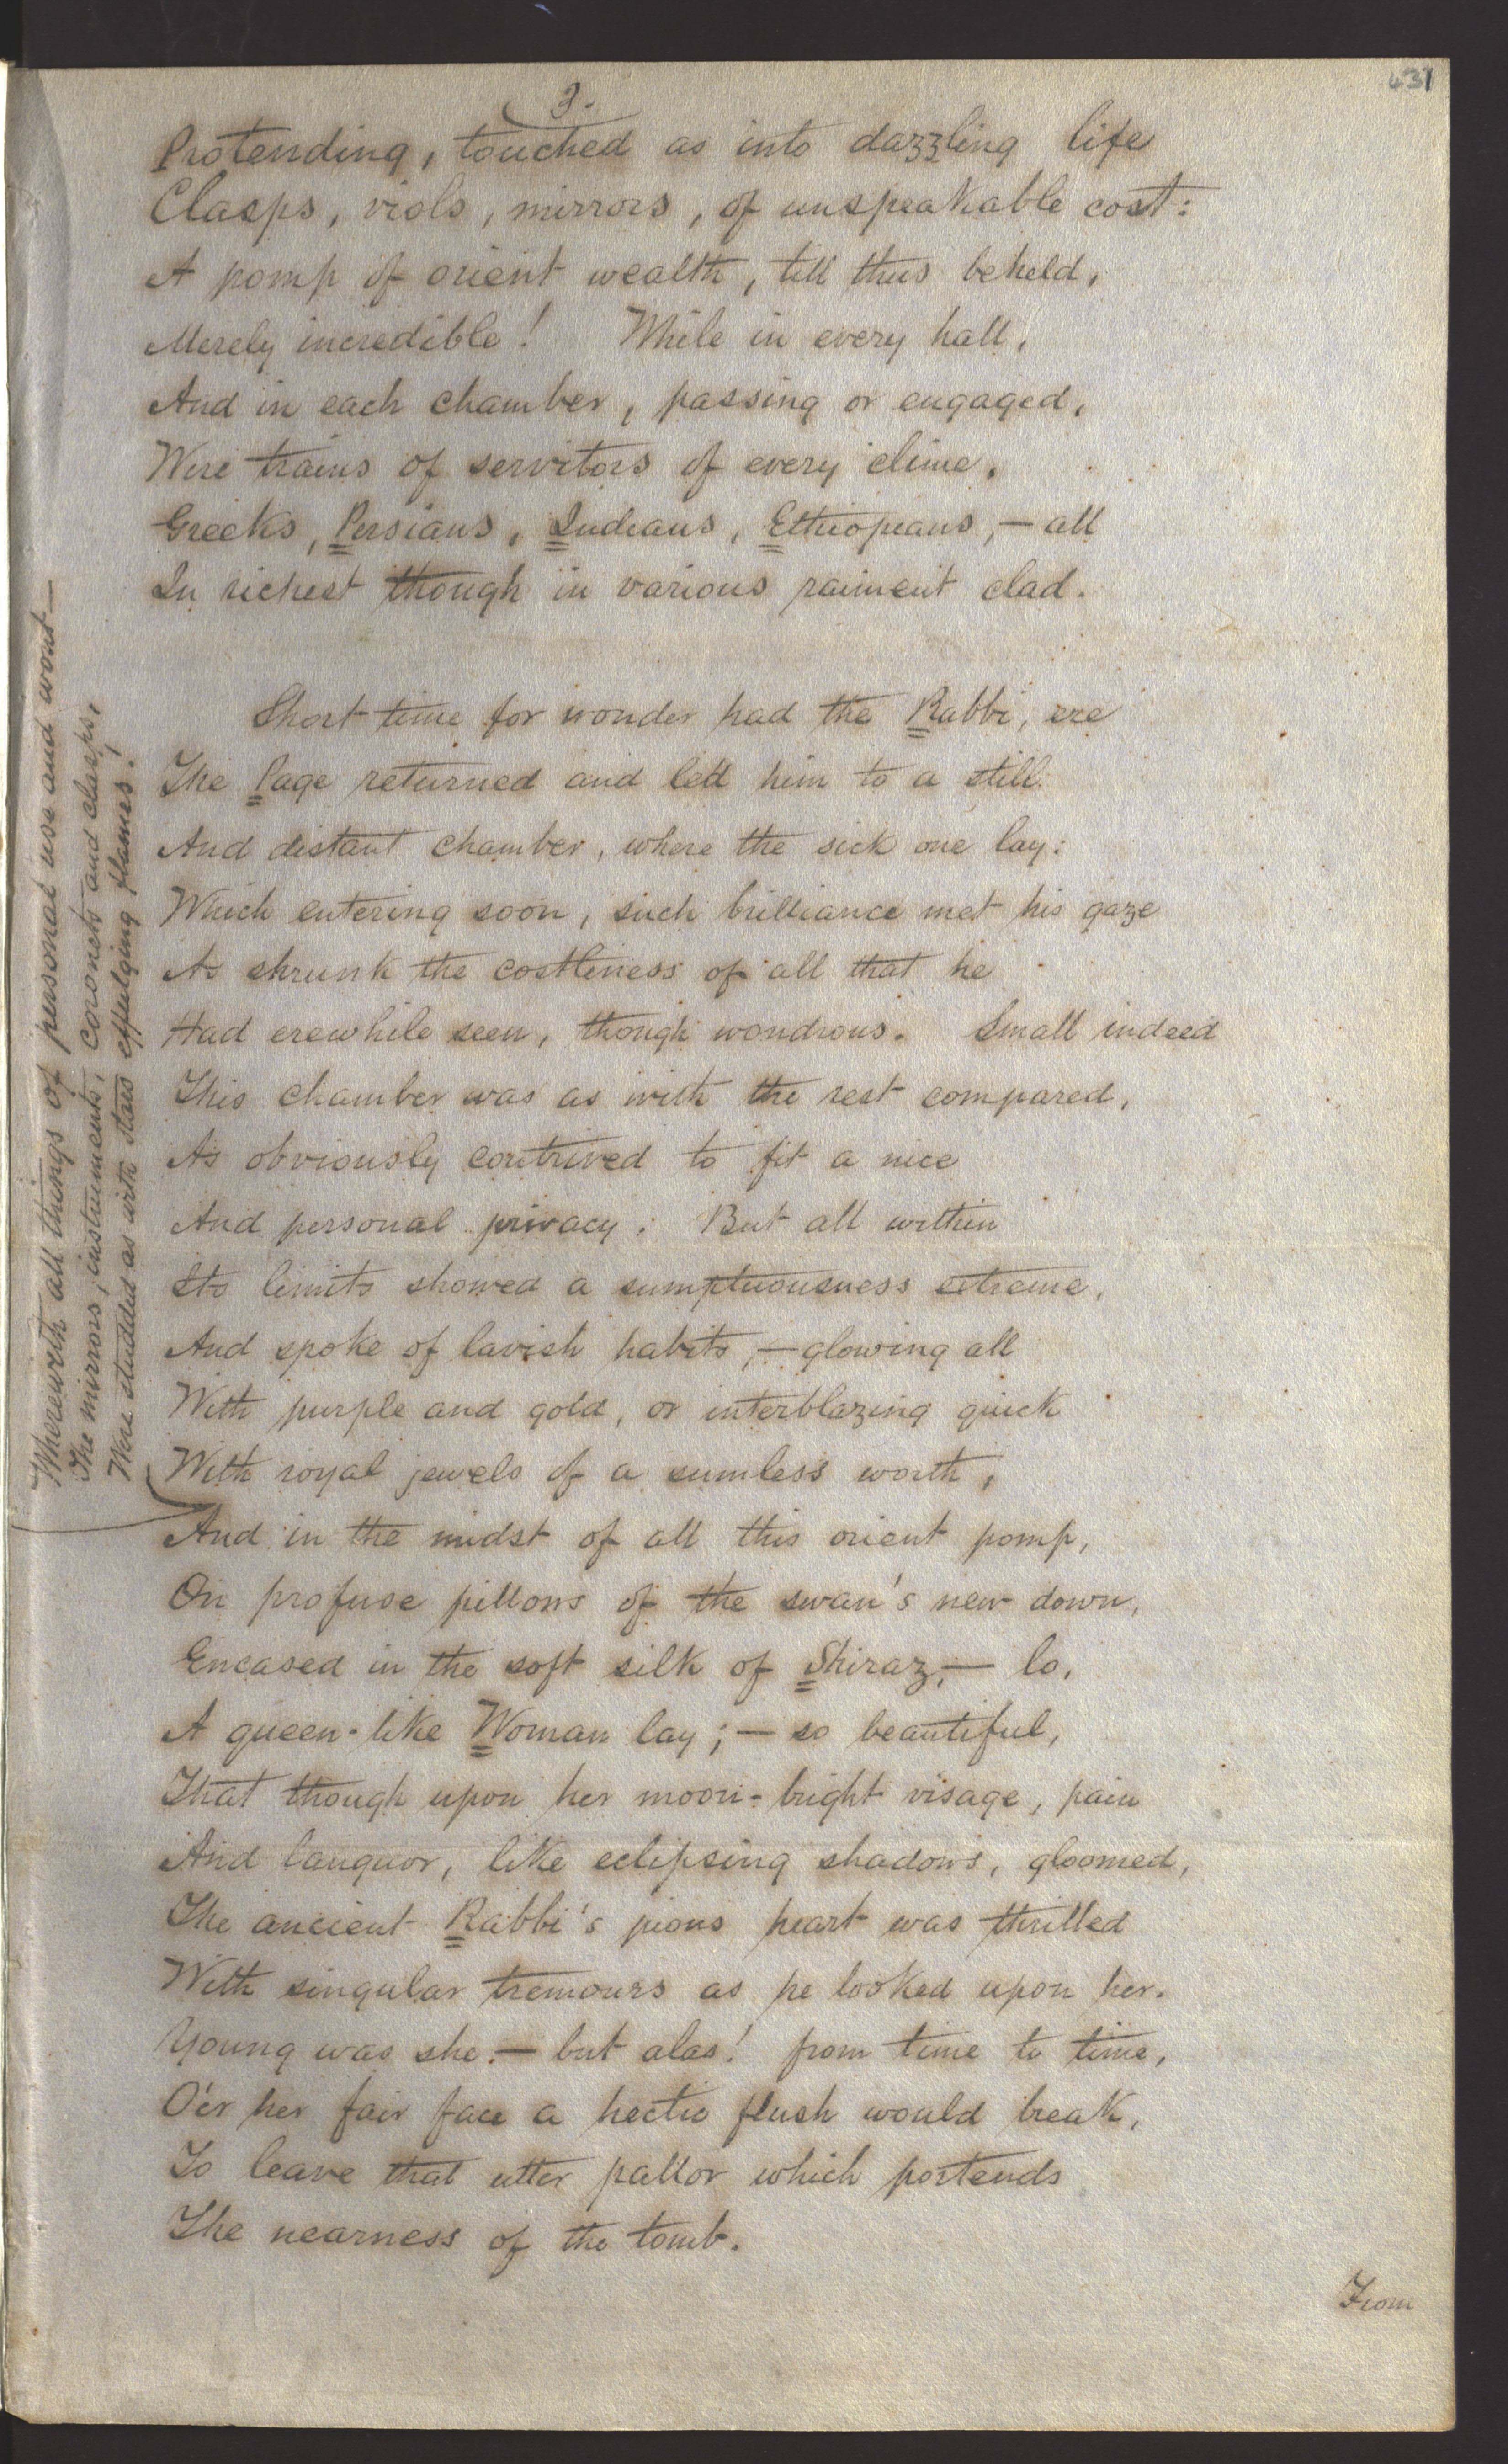 431
3.
Protending, touched as into dazzling life
Clasps, viols, mirrors, of unspeakable cost:
A pomp of orient wealth, till thus beheld,
Merely incredible! While in every hall,
And in each chamber, passing or engaged,
Were trains of servitors of every clime,
Greeks, Persians, Indians, Ethiopians,—all
In richest though in various raiment clad.
Short time for wonder had the Rabbi, ere
The Page returned and led him to a still
And distant chamber, where the sick one lay:
Which entering soon, such brilliance met his gaze
As shrunk the costliness of all that he
Had erewhile seen, though wondrous. Small indeed
This chamber was as with the rest compared,
As obviously contrived to fit a nice
And personal privacy: But all within
Its limits showed a sumptuousness extreme,
And spoke of lavish habits,—glowing all
With purple and gold, or interblazing quick
With royal jewels of a sumless worth,
Wherewith all things of personal use and wont—
The mirrors, instruments, coronets and clasps,
Were studded as with stars effulging flames!
And in the midst of all this orient pomp,
On profuse pillows of the swan's new down,
Encased in the soft silk of Shiraz,— lo,
A queen-like Woman lay;—so beautiful,
That though upon her moon-bright visage, pain
And languor, like eclipsing shadows, gloomed,
The ancient Rabbi's pious heart was thrilled
With singular tremours as he looked upon her.
Young was she.—but alas! from time to time,
O'er her fair face a hectic flush would break,
To leave that utter pallor which portends
The nearness of the tomb.
From